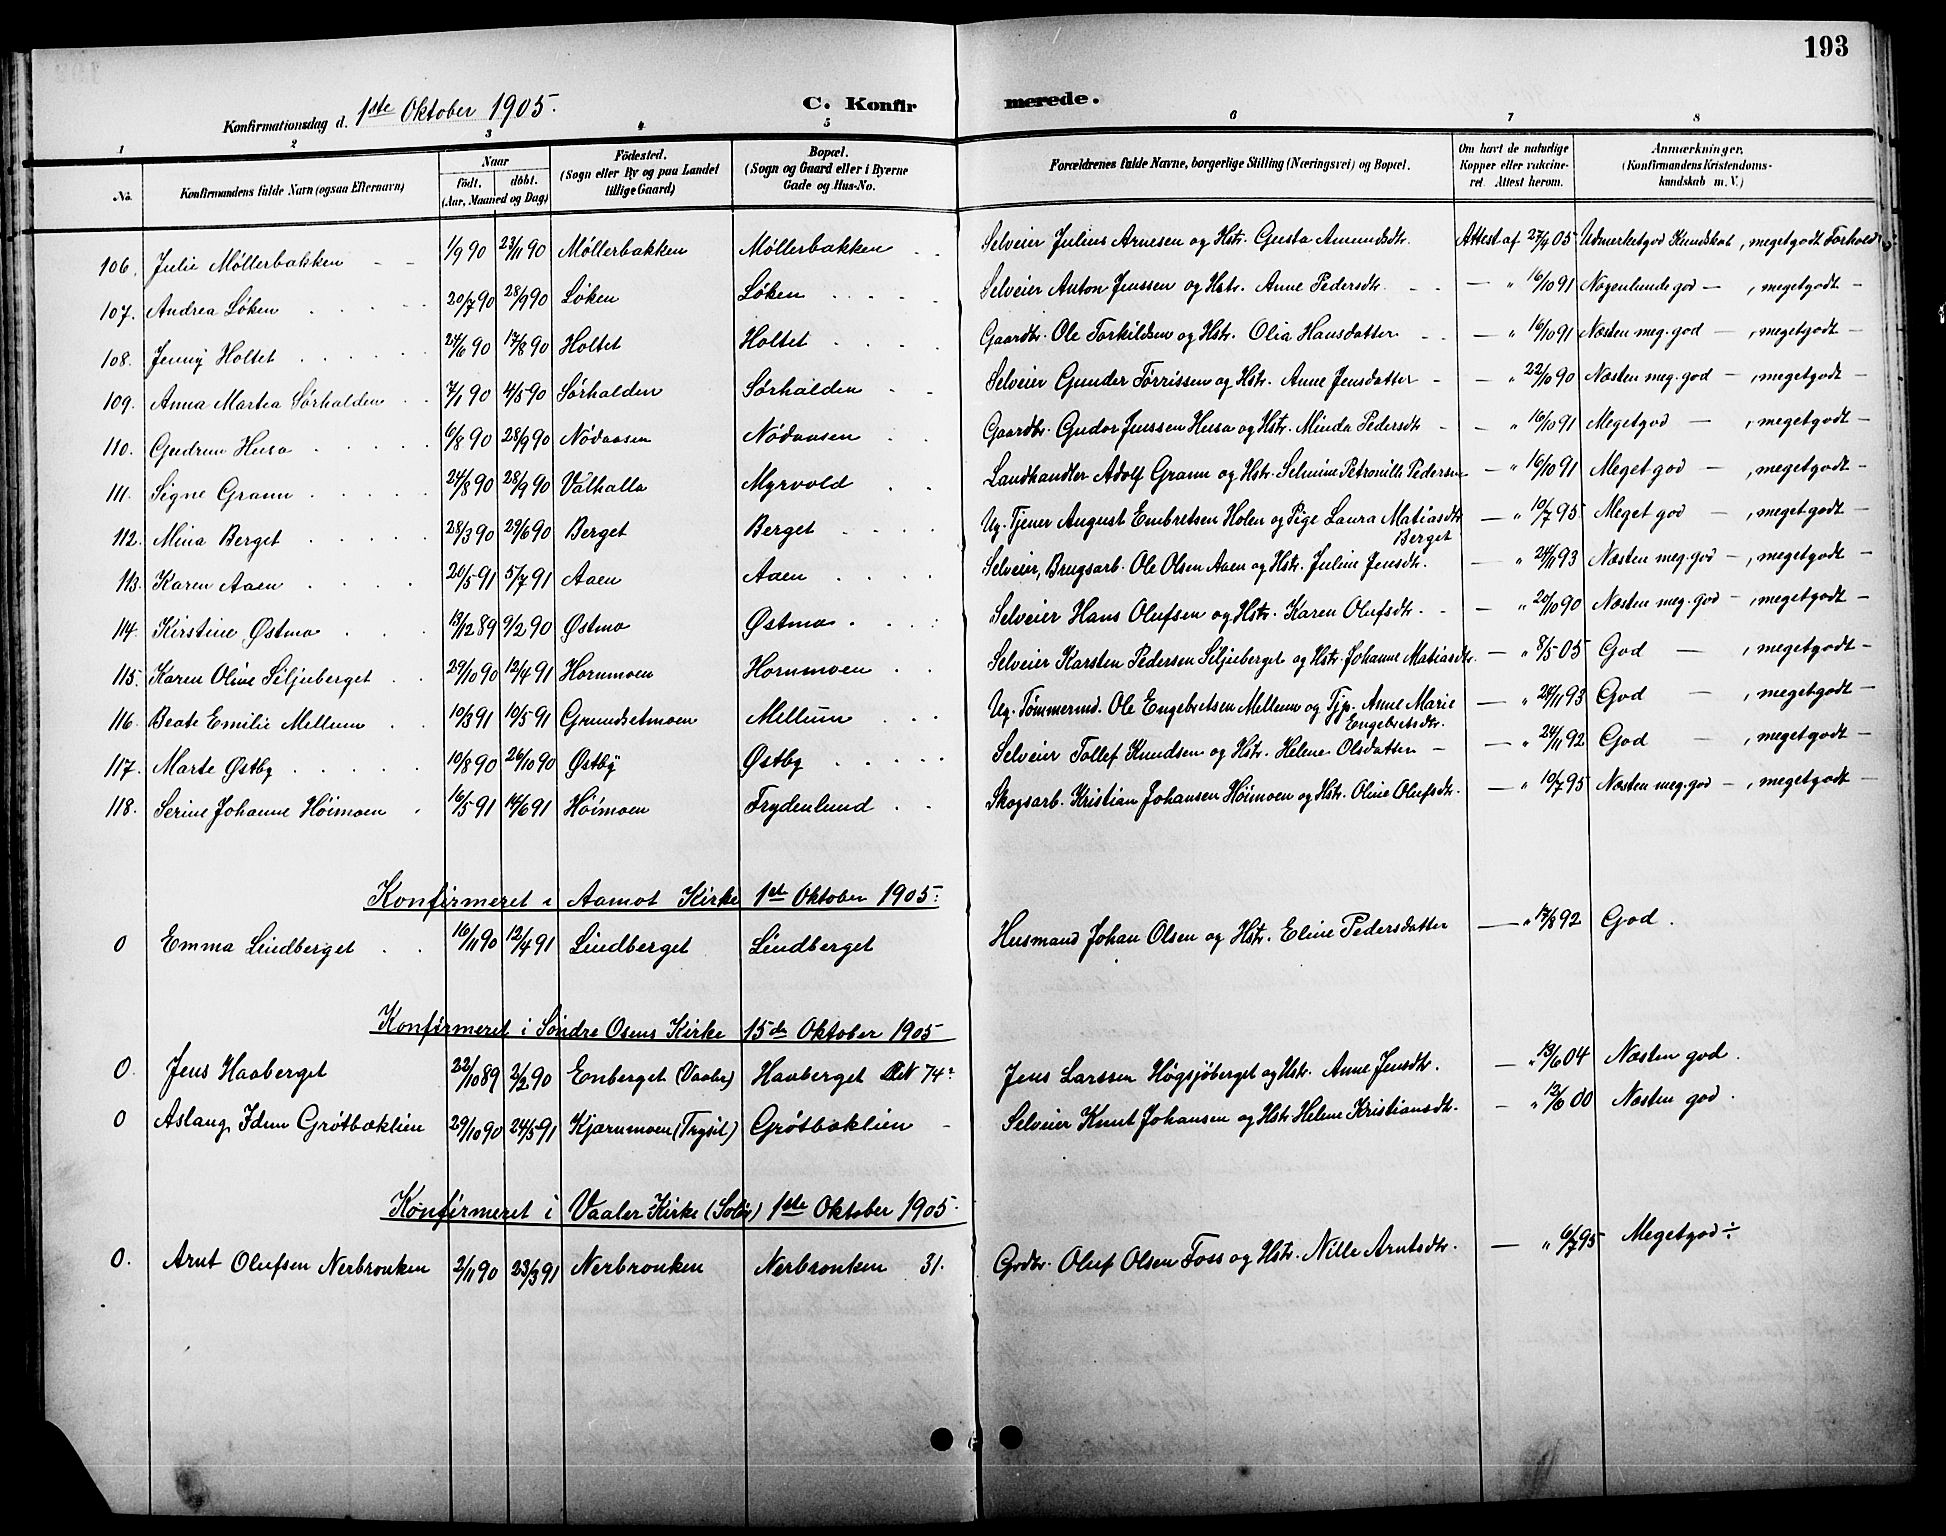 193
Konfirmationsdag d. 1ste Oktober 1905. C. Konfirmerede.
1 2 3 4 5 6 7 8
No. Konfirmandens fulde Navn (ogsaa Efternavn) Naar födt, döbt. (Aar, Maaned og Dag) Födested. (Sogn eller By og paa Landet tillige Gaard) Bopæl. (Sogn og Gaard eller i Byerne Gade og Hus-No. Forældrenes fulde Navne, borgerlige Stilling (Næringsvei) og Bopæl. Om havt de naturlige Kopper eller vakcineret. Attest herom. Anmærkninger, (Konfirmandens Kristendomskundskab m. V.)
106. Julie Møllerbakken 1/9 90 23/11 90 Møllerbakken Møllerbakken Selveier Julius Arnesen og Hstr. Gusta Amundsdtr. Attest af 27/9 05 Udmerketgod Kundskab, megetgodt Forhold
107. Andrea Løken 20/7 90 28/9 90 Løken Løken Selveier Anton Jenssen og Hstr. Anne Pedersdtr. — " 16/10 91 Nogenlunde god — , megetgodt —
108. Jenny Holtet 24/6 90 17/8 90 Holtet Holtet Gaardbr. Ole Torkildsen og Hstr. Olia Hansdatter — " 16/10 91 Næsten meg. god — , megetgodt —
109. Anna Martea Sørhalden 7/1 90 4/5 90 Sørhalden Sørhalden Selveier Gunder Tørrissen og Hstr. Anne Jensdatter — " 22/10 90 Næsten meg. god — , megetgodt —
110. Gudrun Husa 6/8 90 28/9 90 Nødaasen Nødaasen Gaardbr. Gudor Jenssen Husa og Hstr. Minda Pedersdtr — " 16/10 91 Megetgod — , megetgodt —
111. Signe Grann 24/8 90 28/9 90 Valhalla Myrvold Landhandler Adolf Grann og Hstr. Selmine Petronille Pedersen — " 16/10 91 Meget god — , megetgodt —
112. Mina Berget 28/3 90 29/6 90 Berget Berget Ug. Tjener August Embretsen Holen og Pige Laura Matiasdtr. Berget — " 10/7 95 Meget god — , megetgodt —
113. Karen Aaen 20/5 91 5/7 91 Aaen Aaen Selveier, Brugsarb. Ole Olsen Aaen og Hstr. Juline Jensdtr. — " 24/11 93 Næsten meg. god — , megetgodt —
114. Kirstine Østmo 13/12 89 9/2 90 Østmo Østmo Selveier Hans Olufsen og Hstr. Karen Olufsdtr. — " 20/10 90 Næsten meg. god — , megetgodt —
115. Karen Olive Siljuberget 29/10 90 12/4 91 Hornmoen Hornmoen Selveier Karsten Pedersen Siljuberget og Hstr. Johanne Matiasdtr. — " 8/5 05 God — , megetgodt —
116. Beate Emilie Mellum 10/3 91 10/5 91 Grundsetmoen Mellum Ug. Tømmermd. Ole Engebretsen Mellum og Tjp. Anne Marie Engebretsdtr. — " 24/11 93 God — , megetgodt —
117. Marte Østby 10/8 90 26/10 90 Østby Østby Selveier Tollef Knudsen og Hstr. Helene Olsdatter — " 24/11 92 God — , megetgodt —
118. Serine Johanne Höimoen 16/5 91 14/6 91 Höimoen Frydenlund Skogsarb. Kristian Johansen Höimoen og Hstr. Oline Olufsdtr. — " 10/7 95 Næsten meg. god — , megetgodt —
Konfirmeret i Aamot Kirke 1st Oktober 1905.
0 Emma Lindberget 16/11 90 12/4 91 Lindberget Lindberget Husmand Johan Olsen og Hstr. Eline Pedersdatter — " 17/8 92 God.
Konfirmeret i Søndre Osens Kirke 15de Oktober 1905
0. Jens Haaberget 22/10 89 2/2 90 Enberget (Vaaler) Haaberget 74 Jens Larssen Högsjöberget og Hstr. Anne Jensdtr. — " 13/6 04 Næsten god.
0 Aslaug Idun Grötbæklien 29/10 90 24/5 91 Kjærnmoen (Trysil) Grötbæklien Selveier Knut Johansen og Hstr Helene Kristiansdtr. — " 12/6 00 Næsten god.
Konfirmeret i Vaaler Kirke (Solör) 1ste Oktober 1905.
0. Arnt Olufsen Nerbronken 2/11 90 23/3 91 Nerbronken Nerbronken 31. Grdbr. Oluf Olsen Foss og Hstr. Nille Arntsdtr. — " 6/7 95 Megetgod ÷